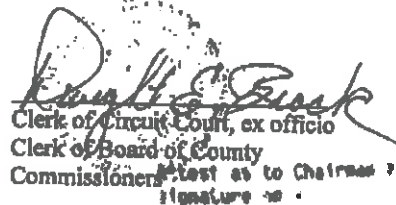 Dwight E. Brock
Clerk of Circuit Court, ex officio
Clerk of Board of County
Commissioners Attest as to Chairman
signature